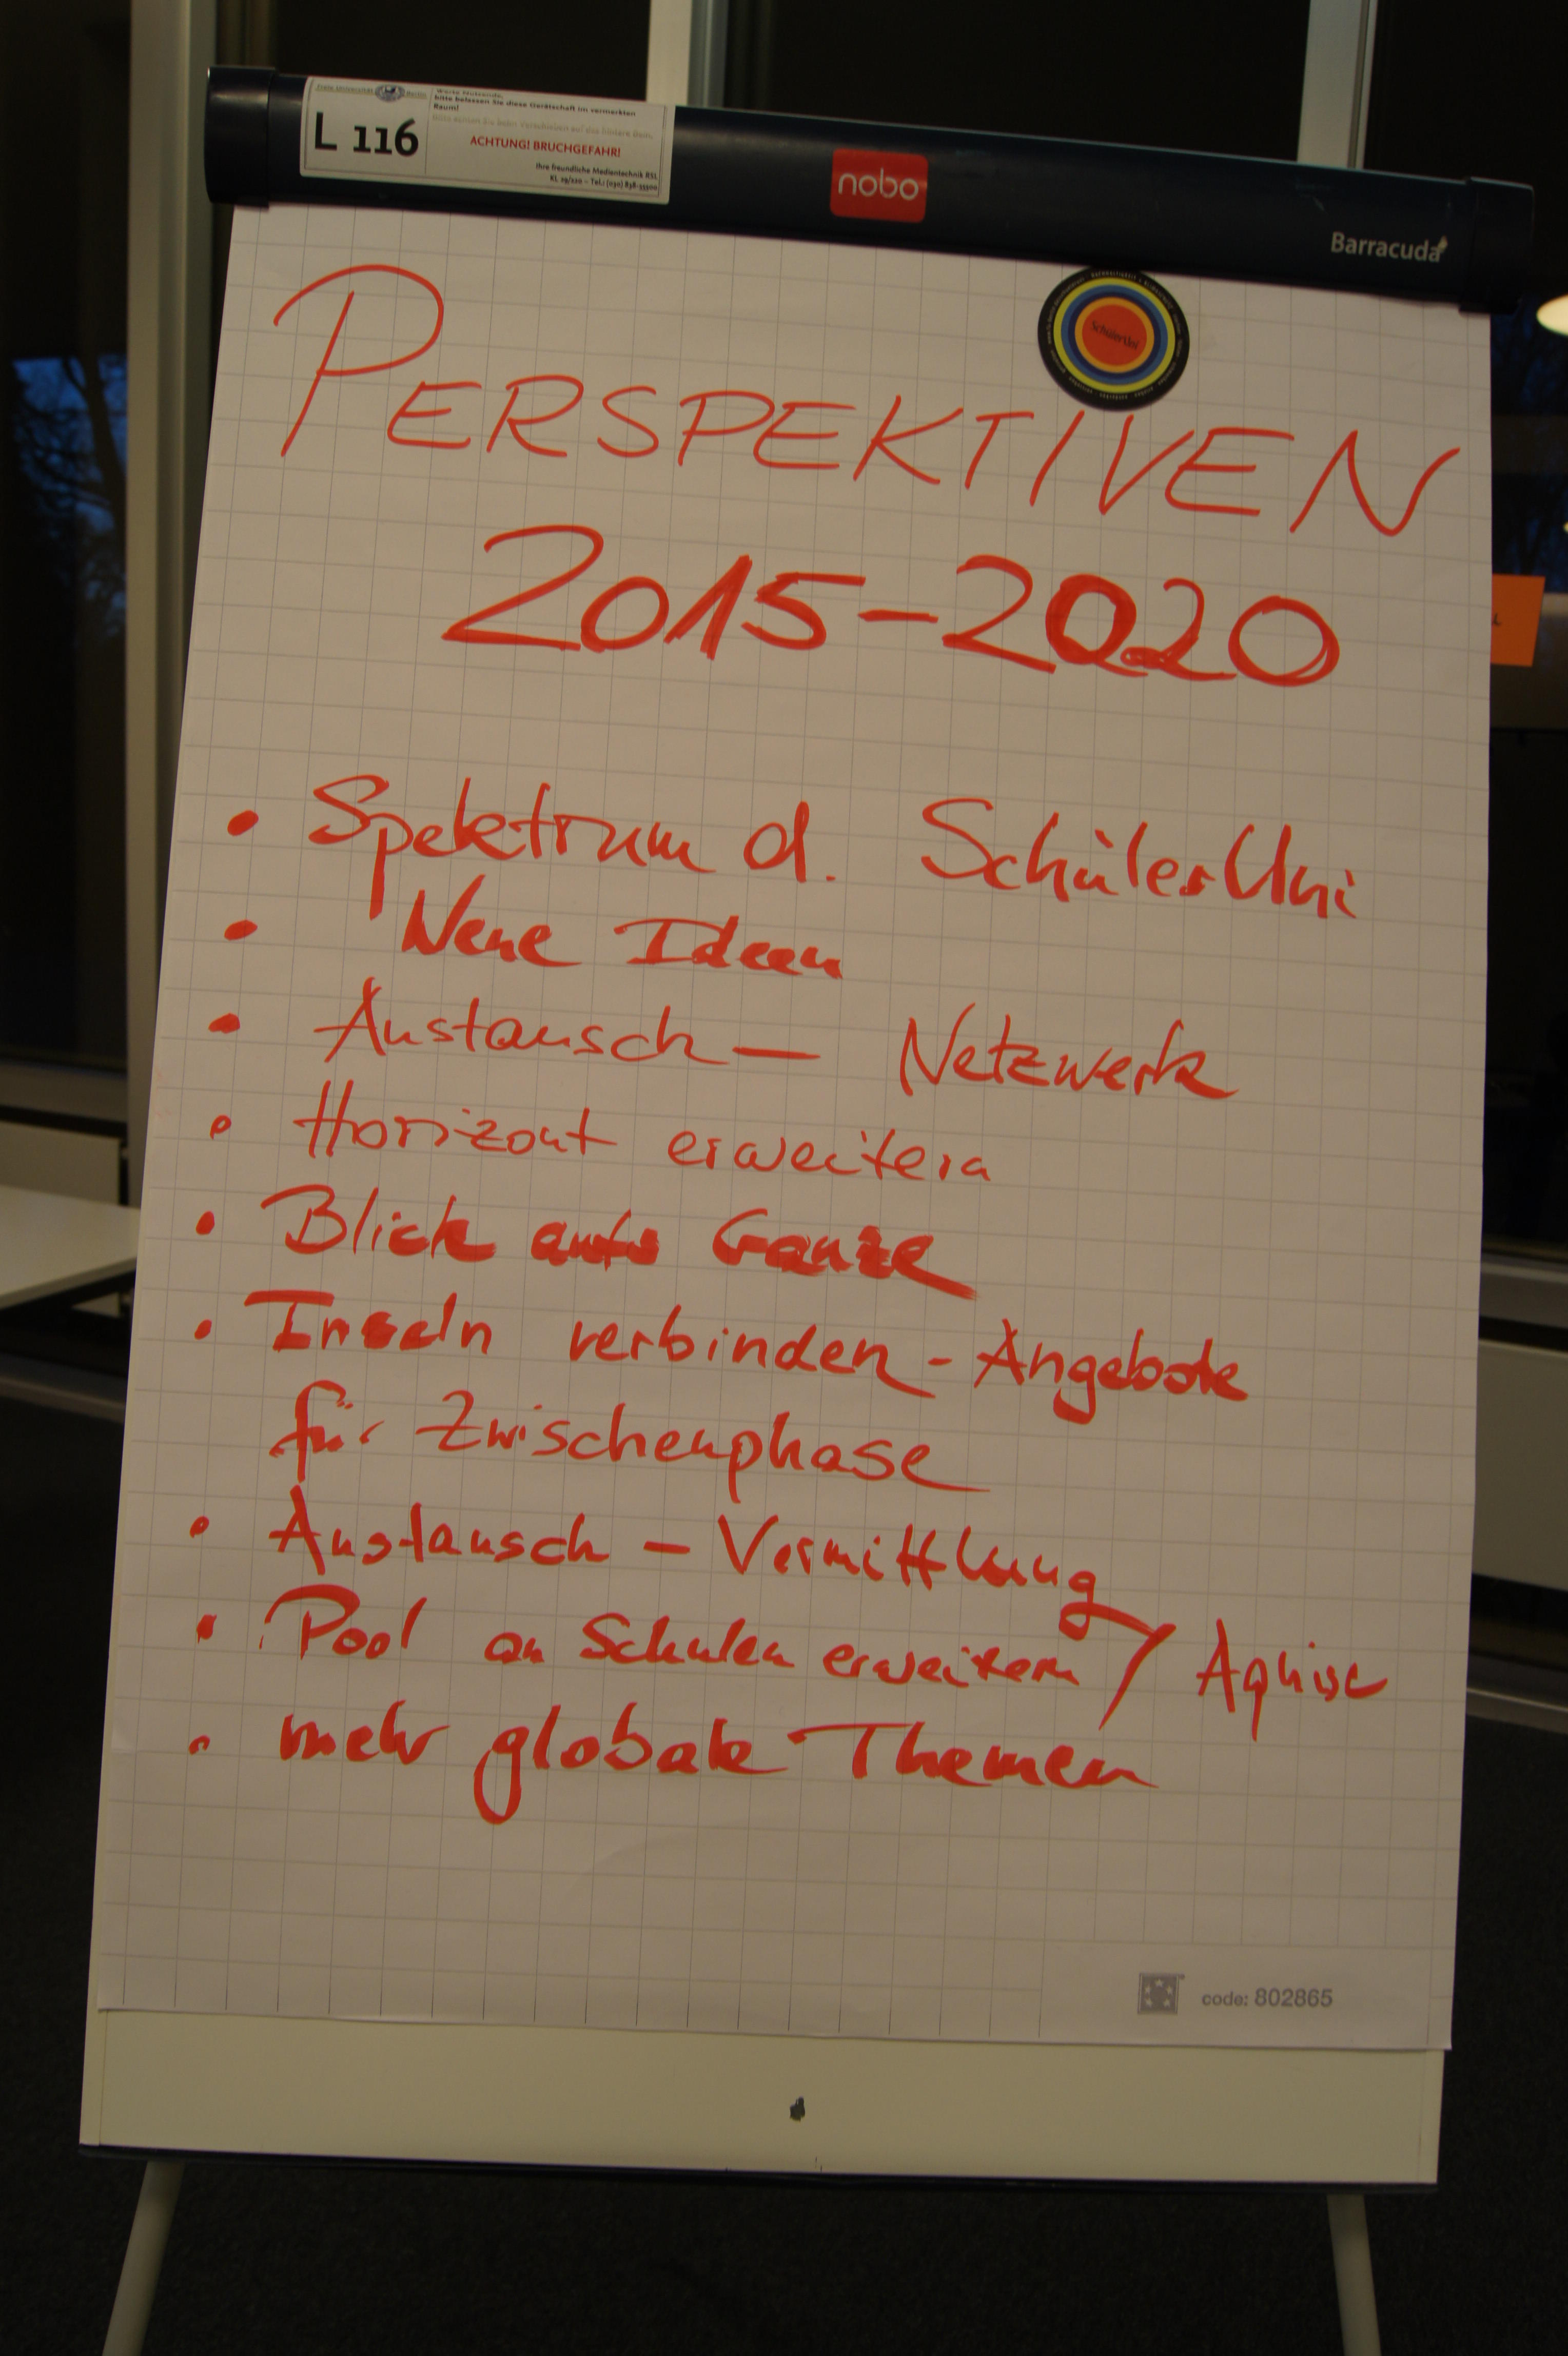 L 116
bitte belassen Sie diese Gerätschaft im vermerkten
Raum!
ACHTUNG! BRUCHGEFAHR!
Ihre freundliche Medientechnik RSL
KL 29/220 – Tel.: (030) 838-55500
nobo
Barracuda
SchülerUni
PERSPEKTIVEN
2015-2020
• Spektrum d. SchülerUni
• Neue Ideen
• Austausch — Netzwerk
• Horizont erweitern
• Blick aufs Ganze
• Inseln verbinden - Angebote
für Zwischenphase
• Austausch - Vermittlung
• Pool an Schulen erweitern / Aquise
• mehr globale Themen
code: 802865